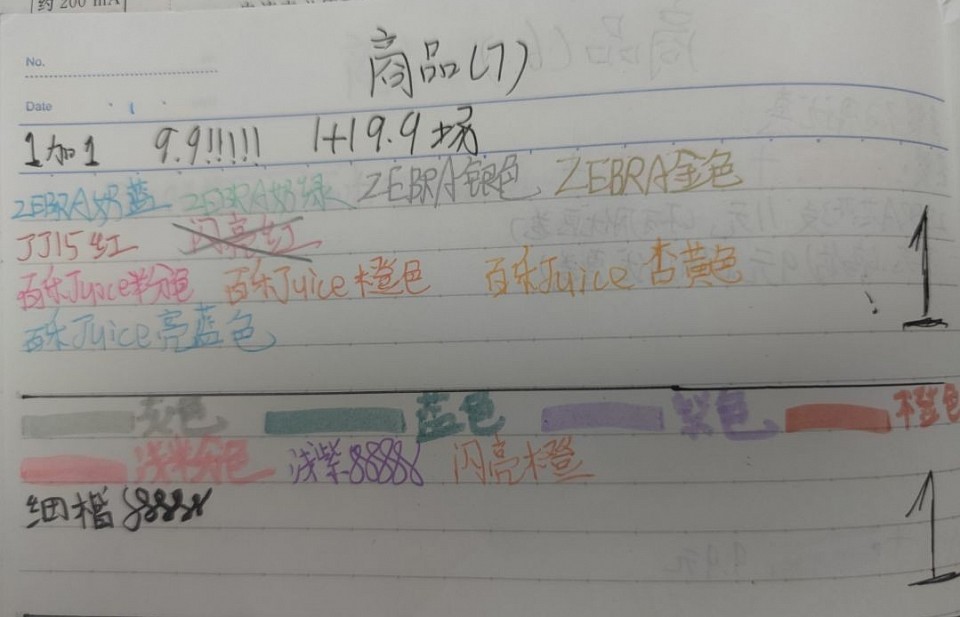 约 200 mA
商品(7)
No.
Date
1加1 9.9!!!!! 1+19.9场
ZEBRA奶蓝 ZEBRA奶绿 ZEBRA银色 ZEBRA金色
JJ15红 闪亮红
百乐Juice粉色 百乐Juice橙色 百乐Juice杏黄色
百乐Juice亮蓝色
1
灰色 蓝色 紫色 橙色
浅粉色 浅紫 闪亮橙
1